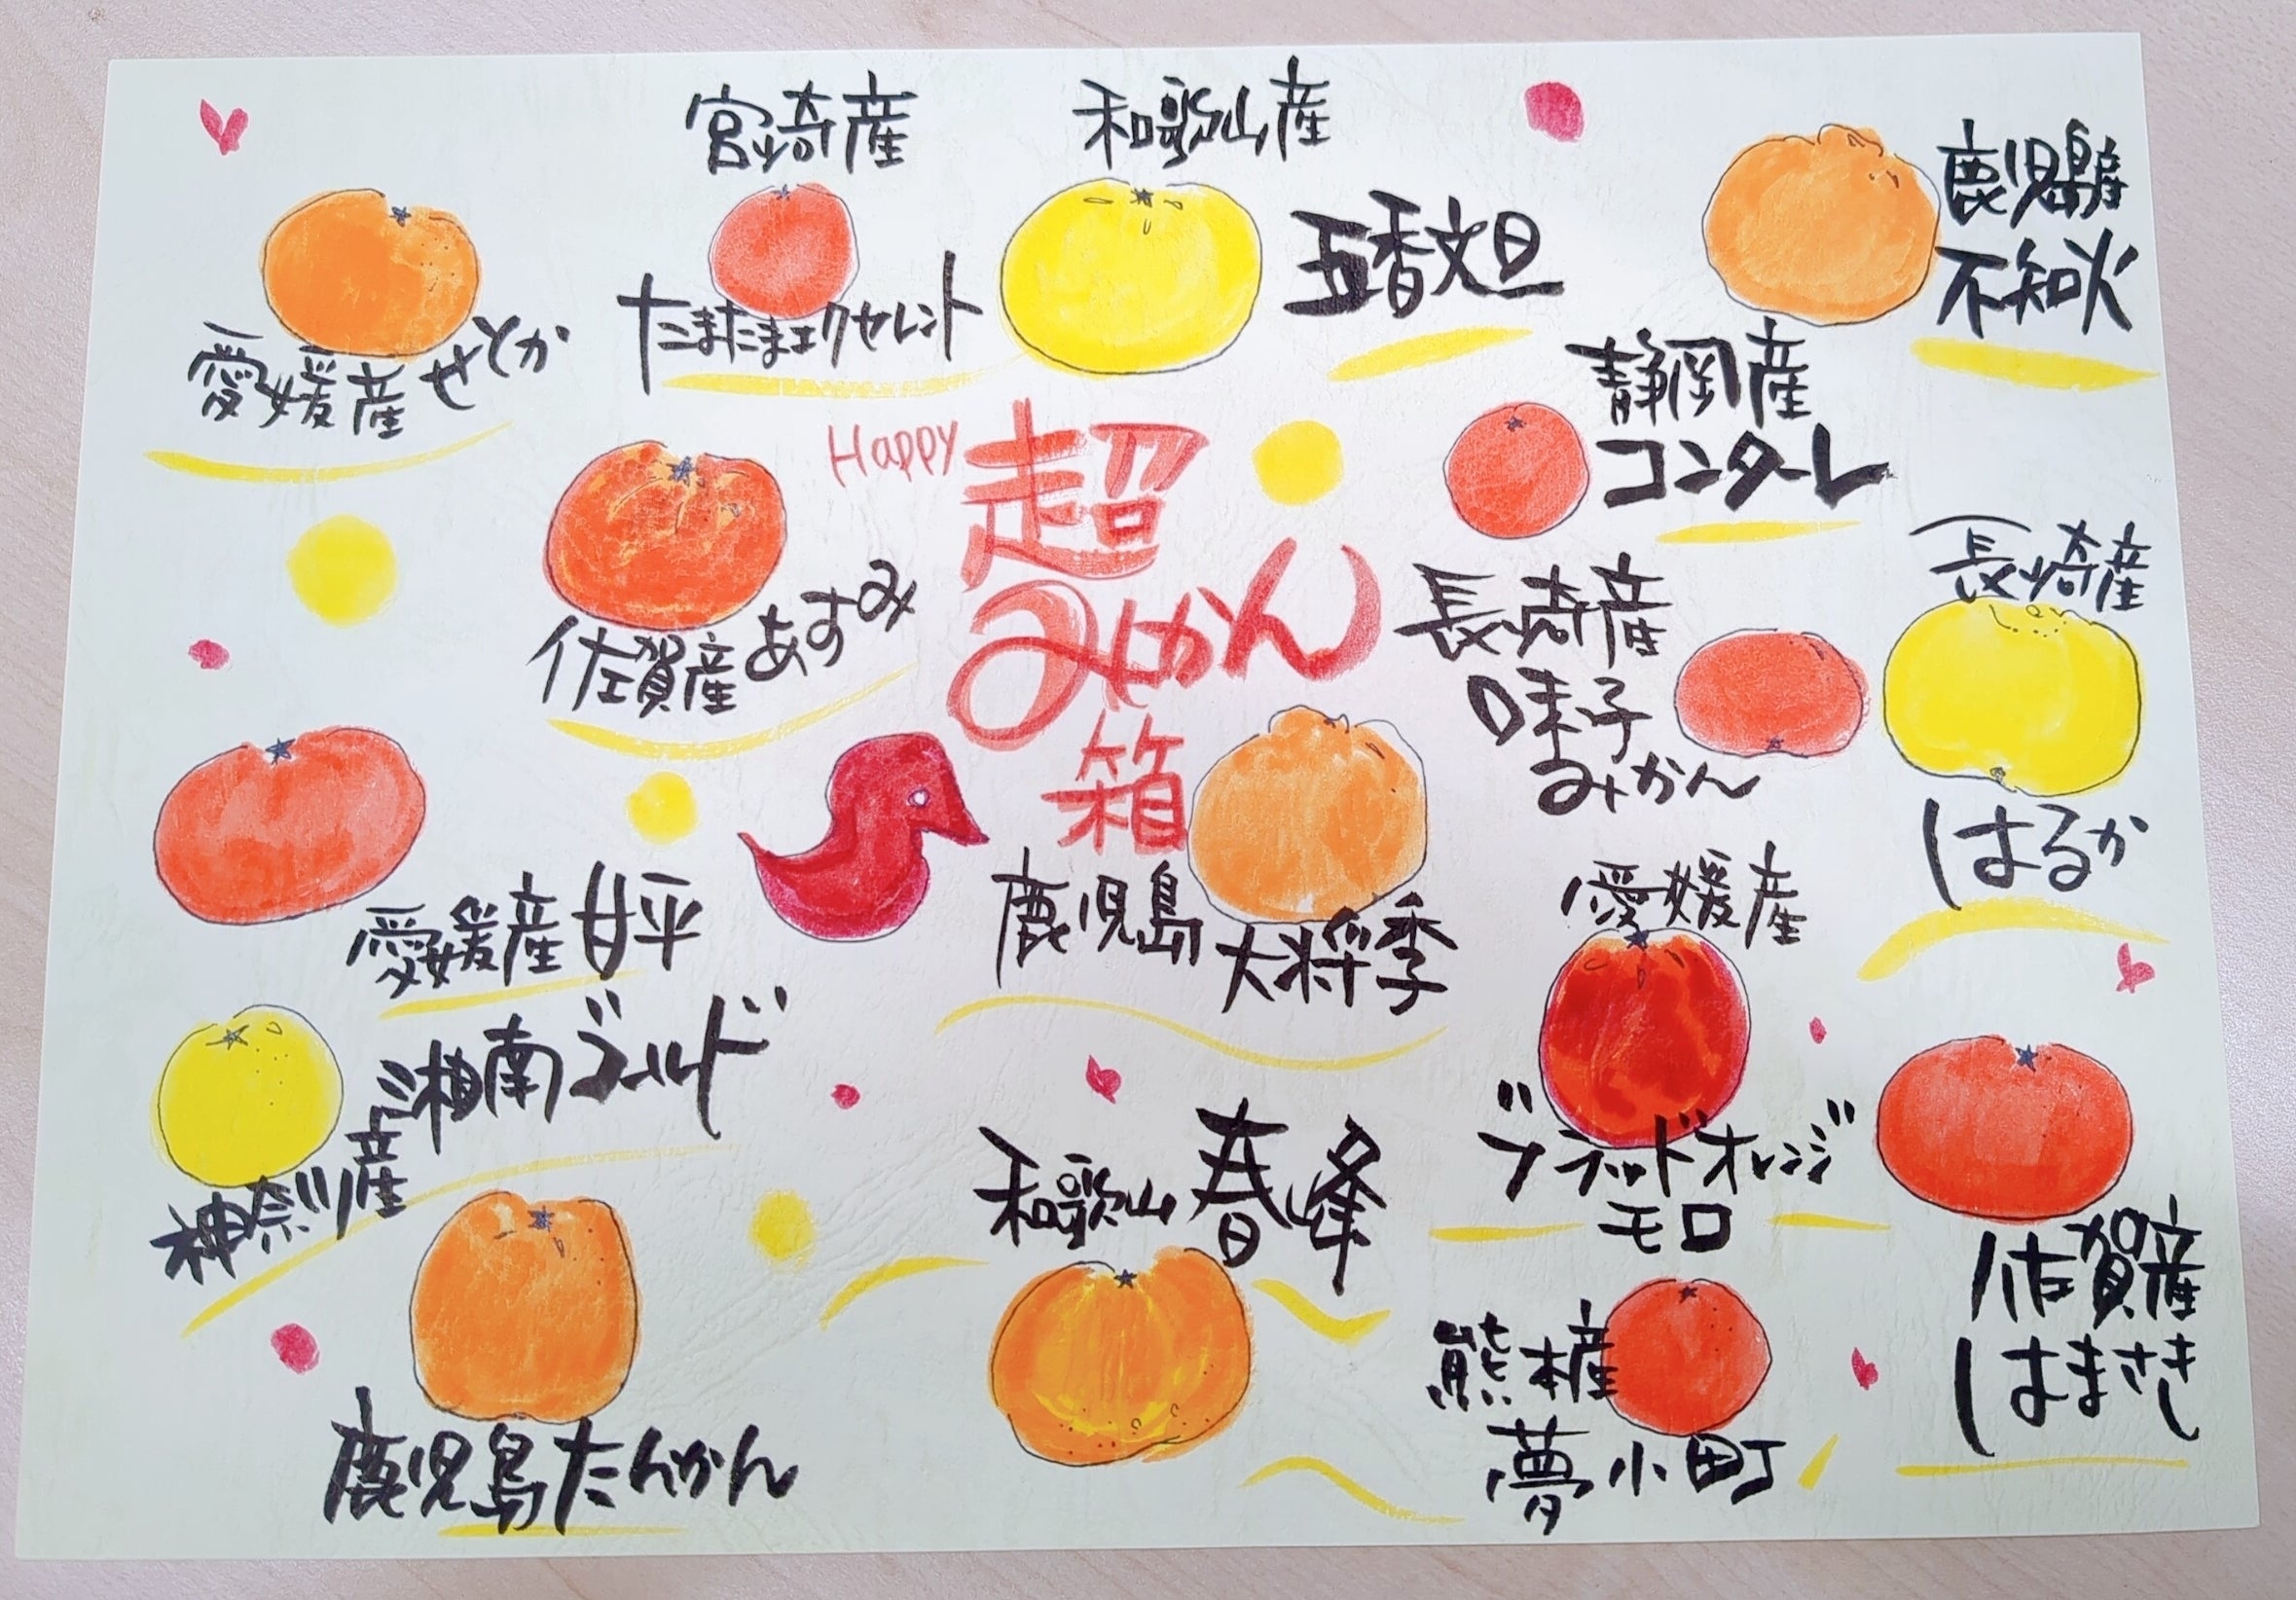 愛媛産せとか
宮崎産
たまたまエクセレント
和歌山産
五香文旦
鹿児島産
不知火
静岡産
コンターレ
Happy
超
みかん
箱
佐賀産あすみ
長崎産
味子
みかん
長崎産
はるか
愛媛産甘平
鹿児島
大将季
愛媛産
ブラッドオレンジ
モロ
湘南ゴールド
神奈川産
和歌山春峰
佐賀産
はまさき
鹿児島たんかん
熊本産
夢小町